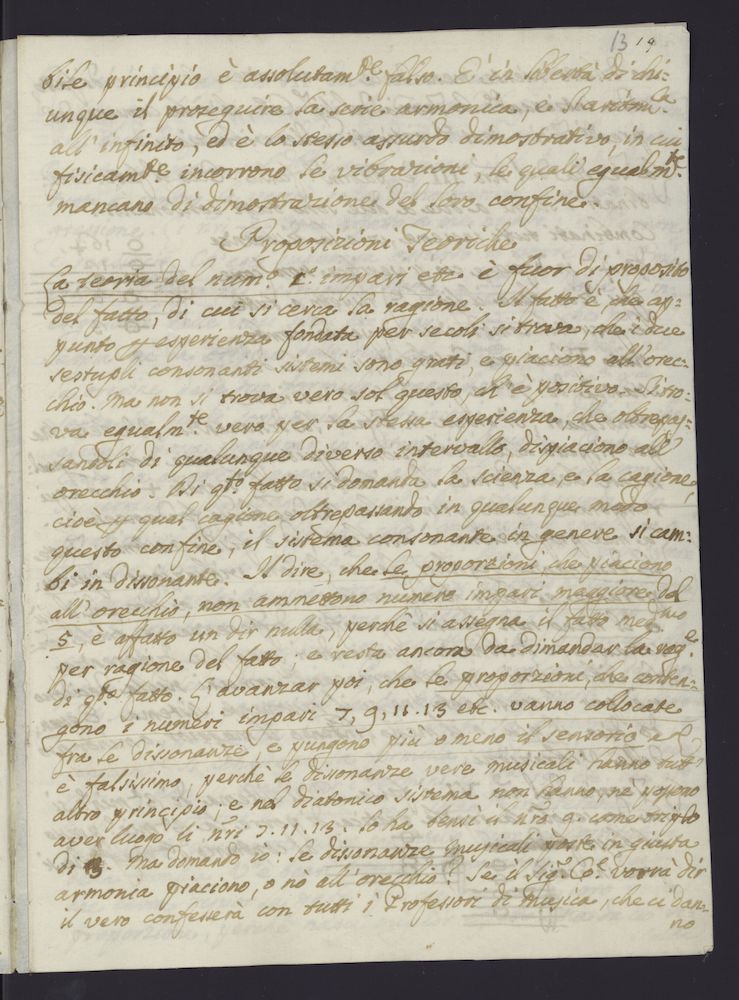 13 19
bile principio è assolutam.te falso. E' in libertà di chi:
unque il proseguire la serie armonica, e l'aritm.ca
all'infinito, ed è lo stesso assurdo dimostrativo, in cui
fisicam.te incorrono le vibrazioni, le quali egualm.te
mancano di dimostrazione del loro confine.
Proposizioni Teoriche
La teoria del num.o impari etc. è fuor di proposito
del fatto, di cui si cerca la ragione. Il fatto è, che ap:
punto p esperienza fondata per secoli si trova, che i due
sestupli consonanti sistemi sono grati, e piaciono all'orec:
chio. Ma non si trova vero sol questo, ch'è positivo. Si tro:
va egualm.te vero per la stessa esperienza, che oltrepas:
sandoli di qualunque diverso intervallo, dispiaciono all'
orecchio. Di q.to fatto si domanda la scienza, e la cagione,
cioè p qual cagione oltrepassando in qualunque modo
questo confine, il sistema consonante in genere si cam:
bi in dissonante. Il dire, che le proporzioni, che piaciono
all'orecchio, non ammettono numero impari maggiore del
5, è affatto un dir nulla, perchè si assegna il fatto med.mo
per ragione del fatto; e resta ancora da dimandar la rag.e
di q.to fatto. L'avanzar poi, che le proporzioni, che conten:
gono i numeri impari 7, 9, 11. 13 etc. vanno collocate
fra le dissonanze, e pungono più o meno il sensorio
è falsissimo, perchè le dissonanze vere musicali hanno tutt'
altro principio; e nel diatonico sistema non hanno, nè possono
aver luogo li n.ri 7. 11. 13. Lo ha bensì il n.ro 9. come triplo
di 3. Ma domando io: le dissonanze musicali poste in giusta
armonia piaciono, o nò all'orecchio? Se il Sig.r Co.e vorrà dir
il vero confesserà con tutti i Professori di Musica, che ci dan:
no